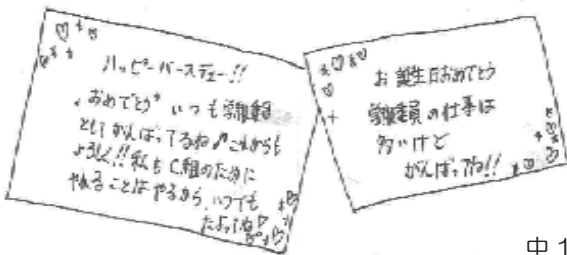 ハッピーバースデー!!
おめでとう いつも学級委員
としてがんばってるね♪これからも
よろしく!!私もC組のために
やれることはやるから、いつでも
たよってね♡
お誕生日おめでとう
学級委員の仕事は
多いけど
がんばってね!!
中1